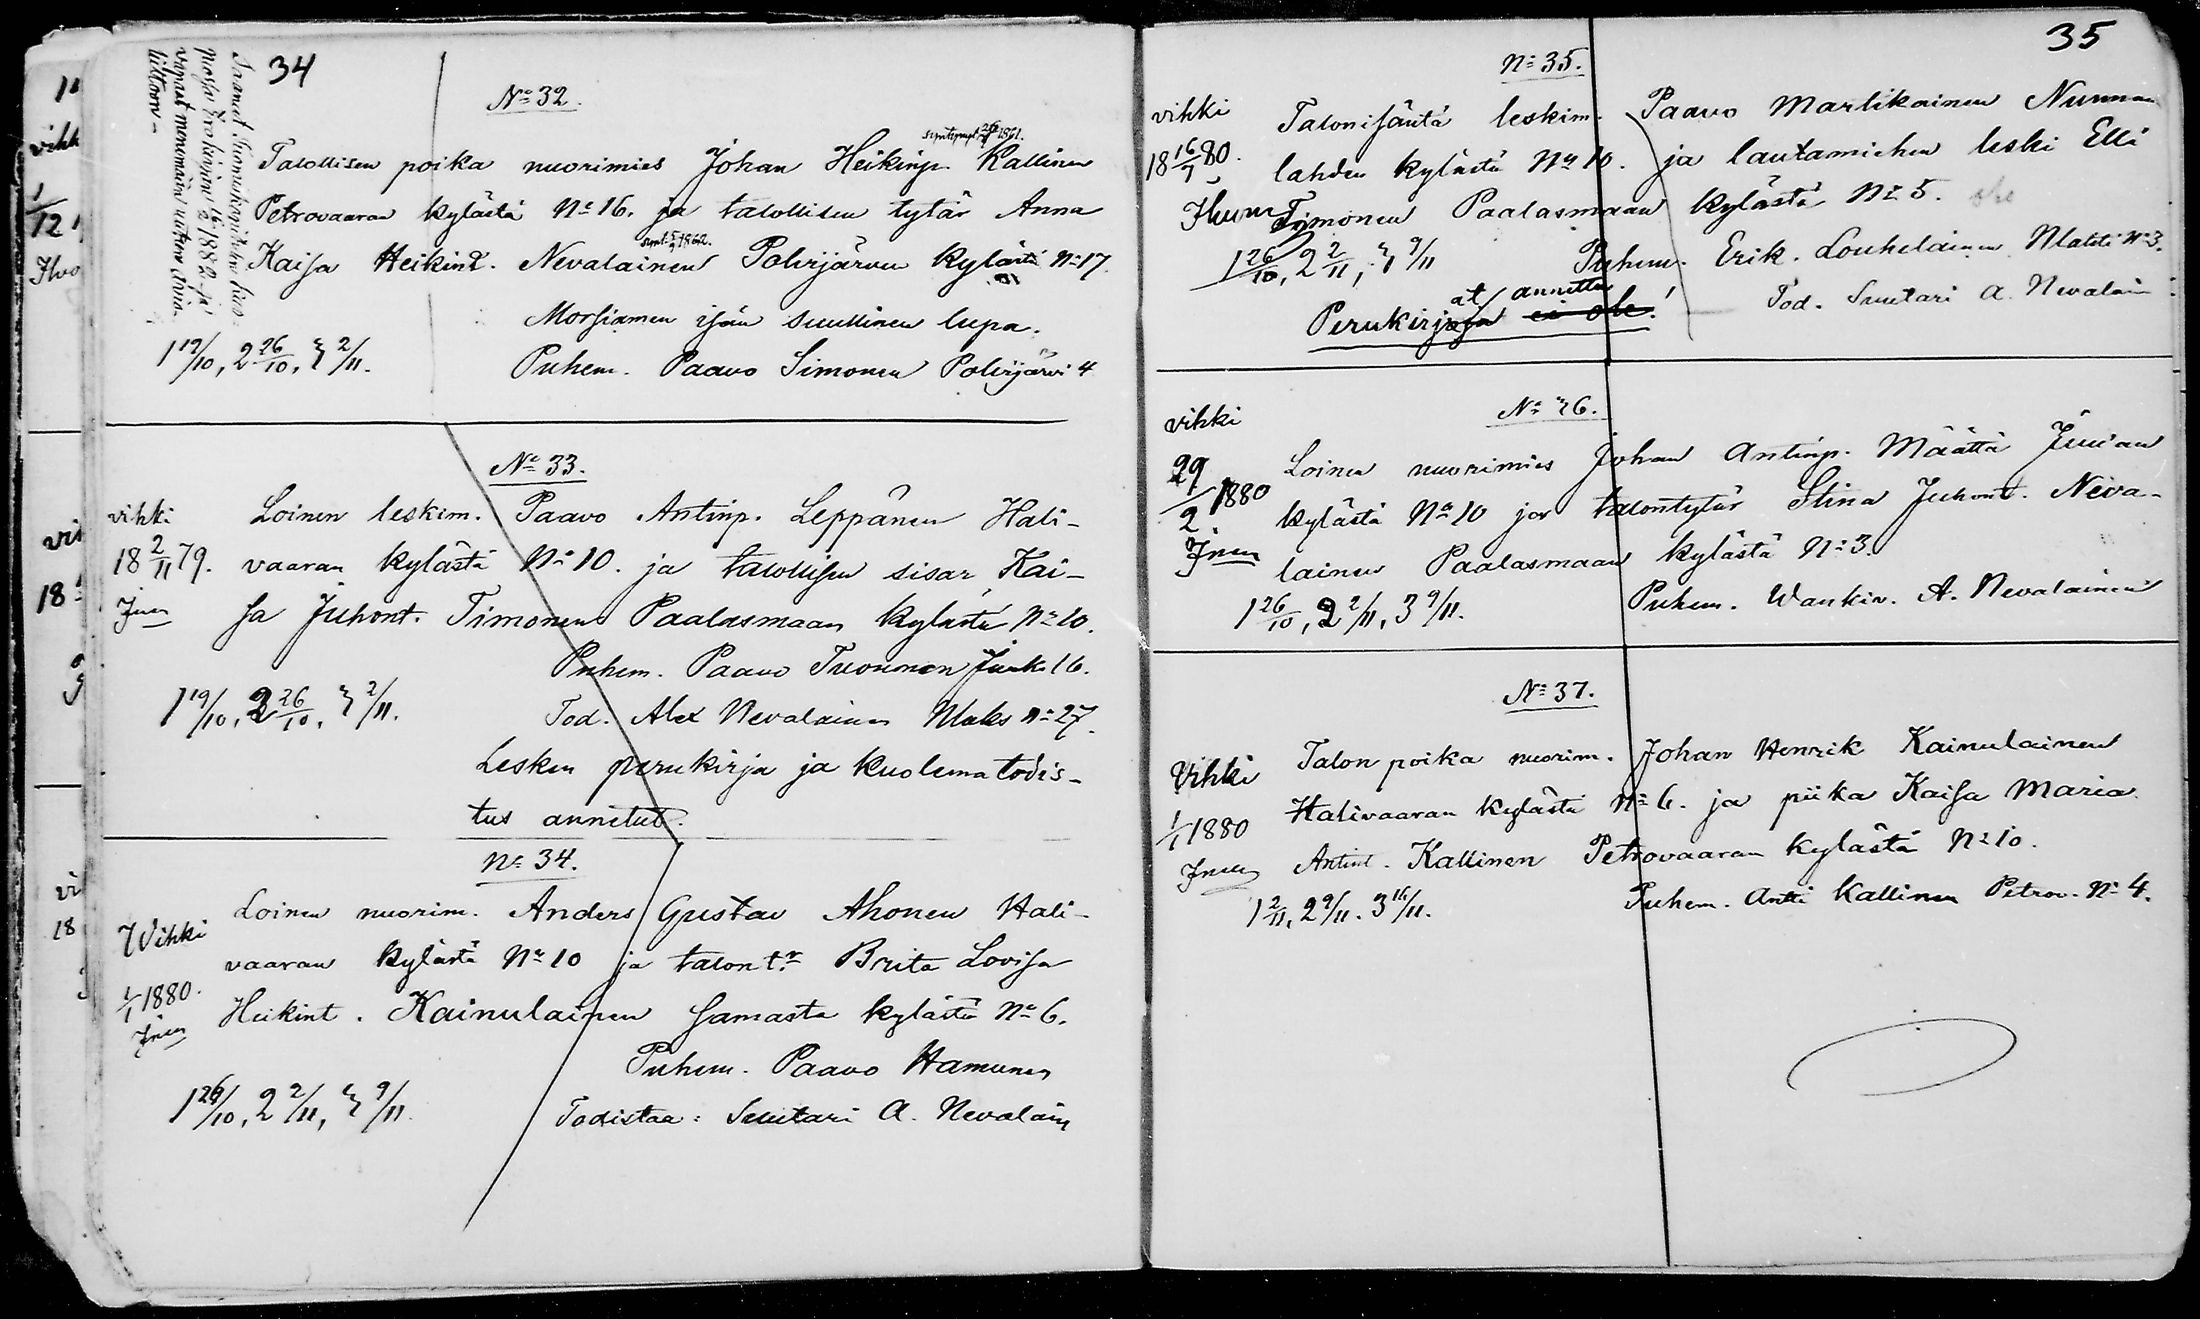 34
No 32.
syntynyt 1861.
Talollisen poika nuorimies Johan Heikinp. Kallinen
Petrovaaran kylästä No 16. ja talollisen tytär Anna
synt. 1862.
Kaisa Heikint. Nevalainen Polvijärven kylästä No 17.
Morsiamen isän suullinen lupa.
1 19/10, 2 26/10, 3 2/11.
Puhem. Paavo Simonen Polvijärvi 4
No 33.
vihki
18 2/11 79.
Loinen leskim. Paavo Antinp. Leppänen Hali-
vaaran kylästä No 10. ja talollisen sisar, Kai-
sa Juhont. Timonen Paalasmaan kylästä No 10.
Puhem. Paavo Tuononen Juuk. 16.
1 19/10, 2 26/10, 3 2/11.
Tod. Alex Nevalainen Maks No 27.
Lesken perukirja ja kuolematodis-
tus annetut.
No 34.
Vihki
1/1 1880.
Loinen nuorim. Anders Gustav Ahonen Hali-
vaaran kylästä No 10 ja talont:r Brita Lovisa
Heikint. Kainulainen samasta kylästä No 6.
Puhem. Paavo Hamunen
1 26/10, 2 2/11, 3 9/11.
Todistaa: Suutari A. Nevalain
35
No 35.
vihki
18 16/1 80.
Talonisäntä leskim. Paavo Martikainen Nunnan
lahden kylästä No 10. ja lautamiehen leski Elli
Timonen Paalasmaan kylästä No 5.
1 26/10, 2 2/11, 3 9/11
Puhem. Erik Louhelainen Matti No 3.
at annettu
Perukirjaja ei ole!
Tod. Suutari A. Nevalain
No 36.
vihki
29/2 1880
Loinen nuorimies Johan Antinp. Määttä Juuan
kylästä No 10 ja talontytär Stina Juhont. Neva-
lainen Paalasmaan kylästä No 3.
1 26/10, 2 2/11, 3 9/11.
Puhem. Wankin. A. Nevalainen
No 37.
Vihki
1/1 1880
Talon poika nuorim. Johan Henrik Kainulainen
Halivaaran kylästä No 6. ja piika Kaisa Maria
Antint. Kallinen Petrovaaran kylästä No 10.
1 2/11, 2 9/11. 3 16/11.
Puhem. Antti Kallinen Petrov. No 4.